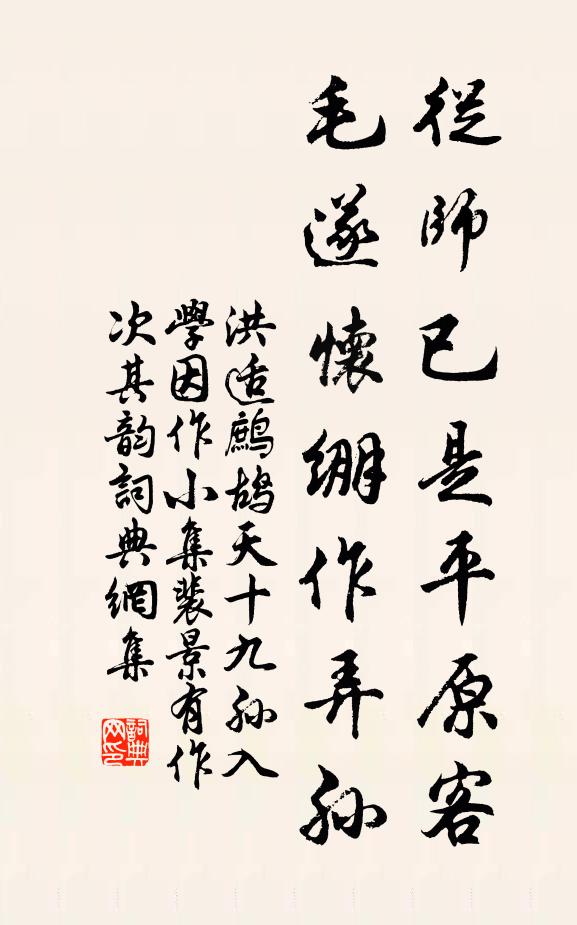 從師已是平原客
毛遂懷綳作弄孫
洪适鷓鴣天十九孫入
學因作小集裴景有作
次其韵詞典網集
詞典
网印